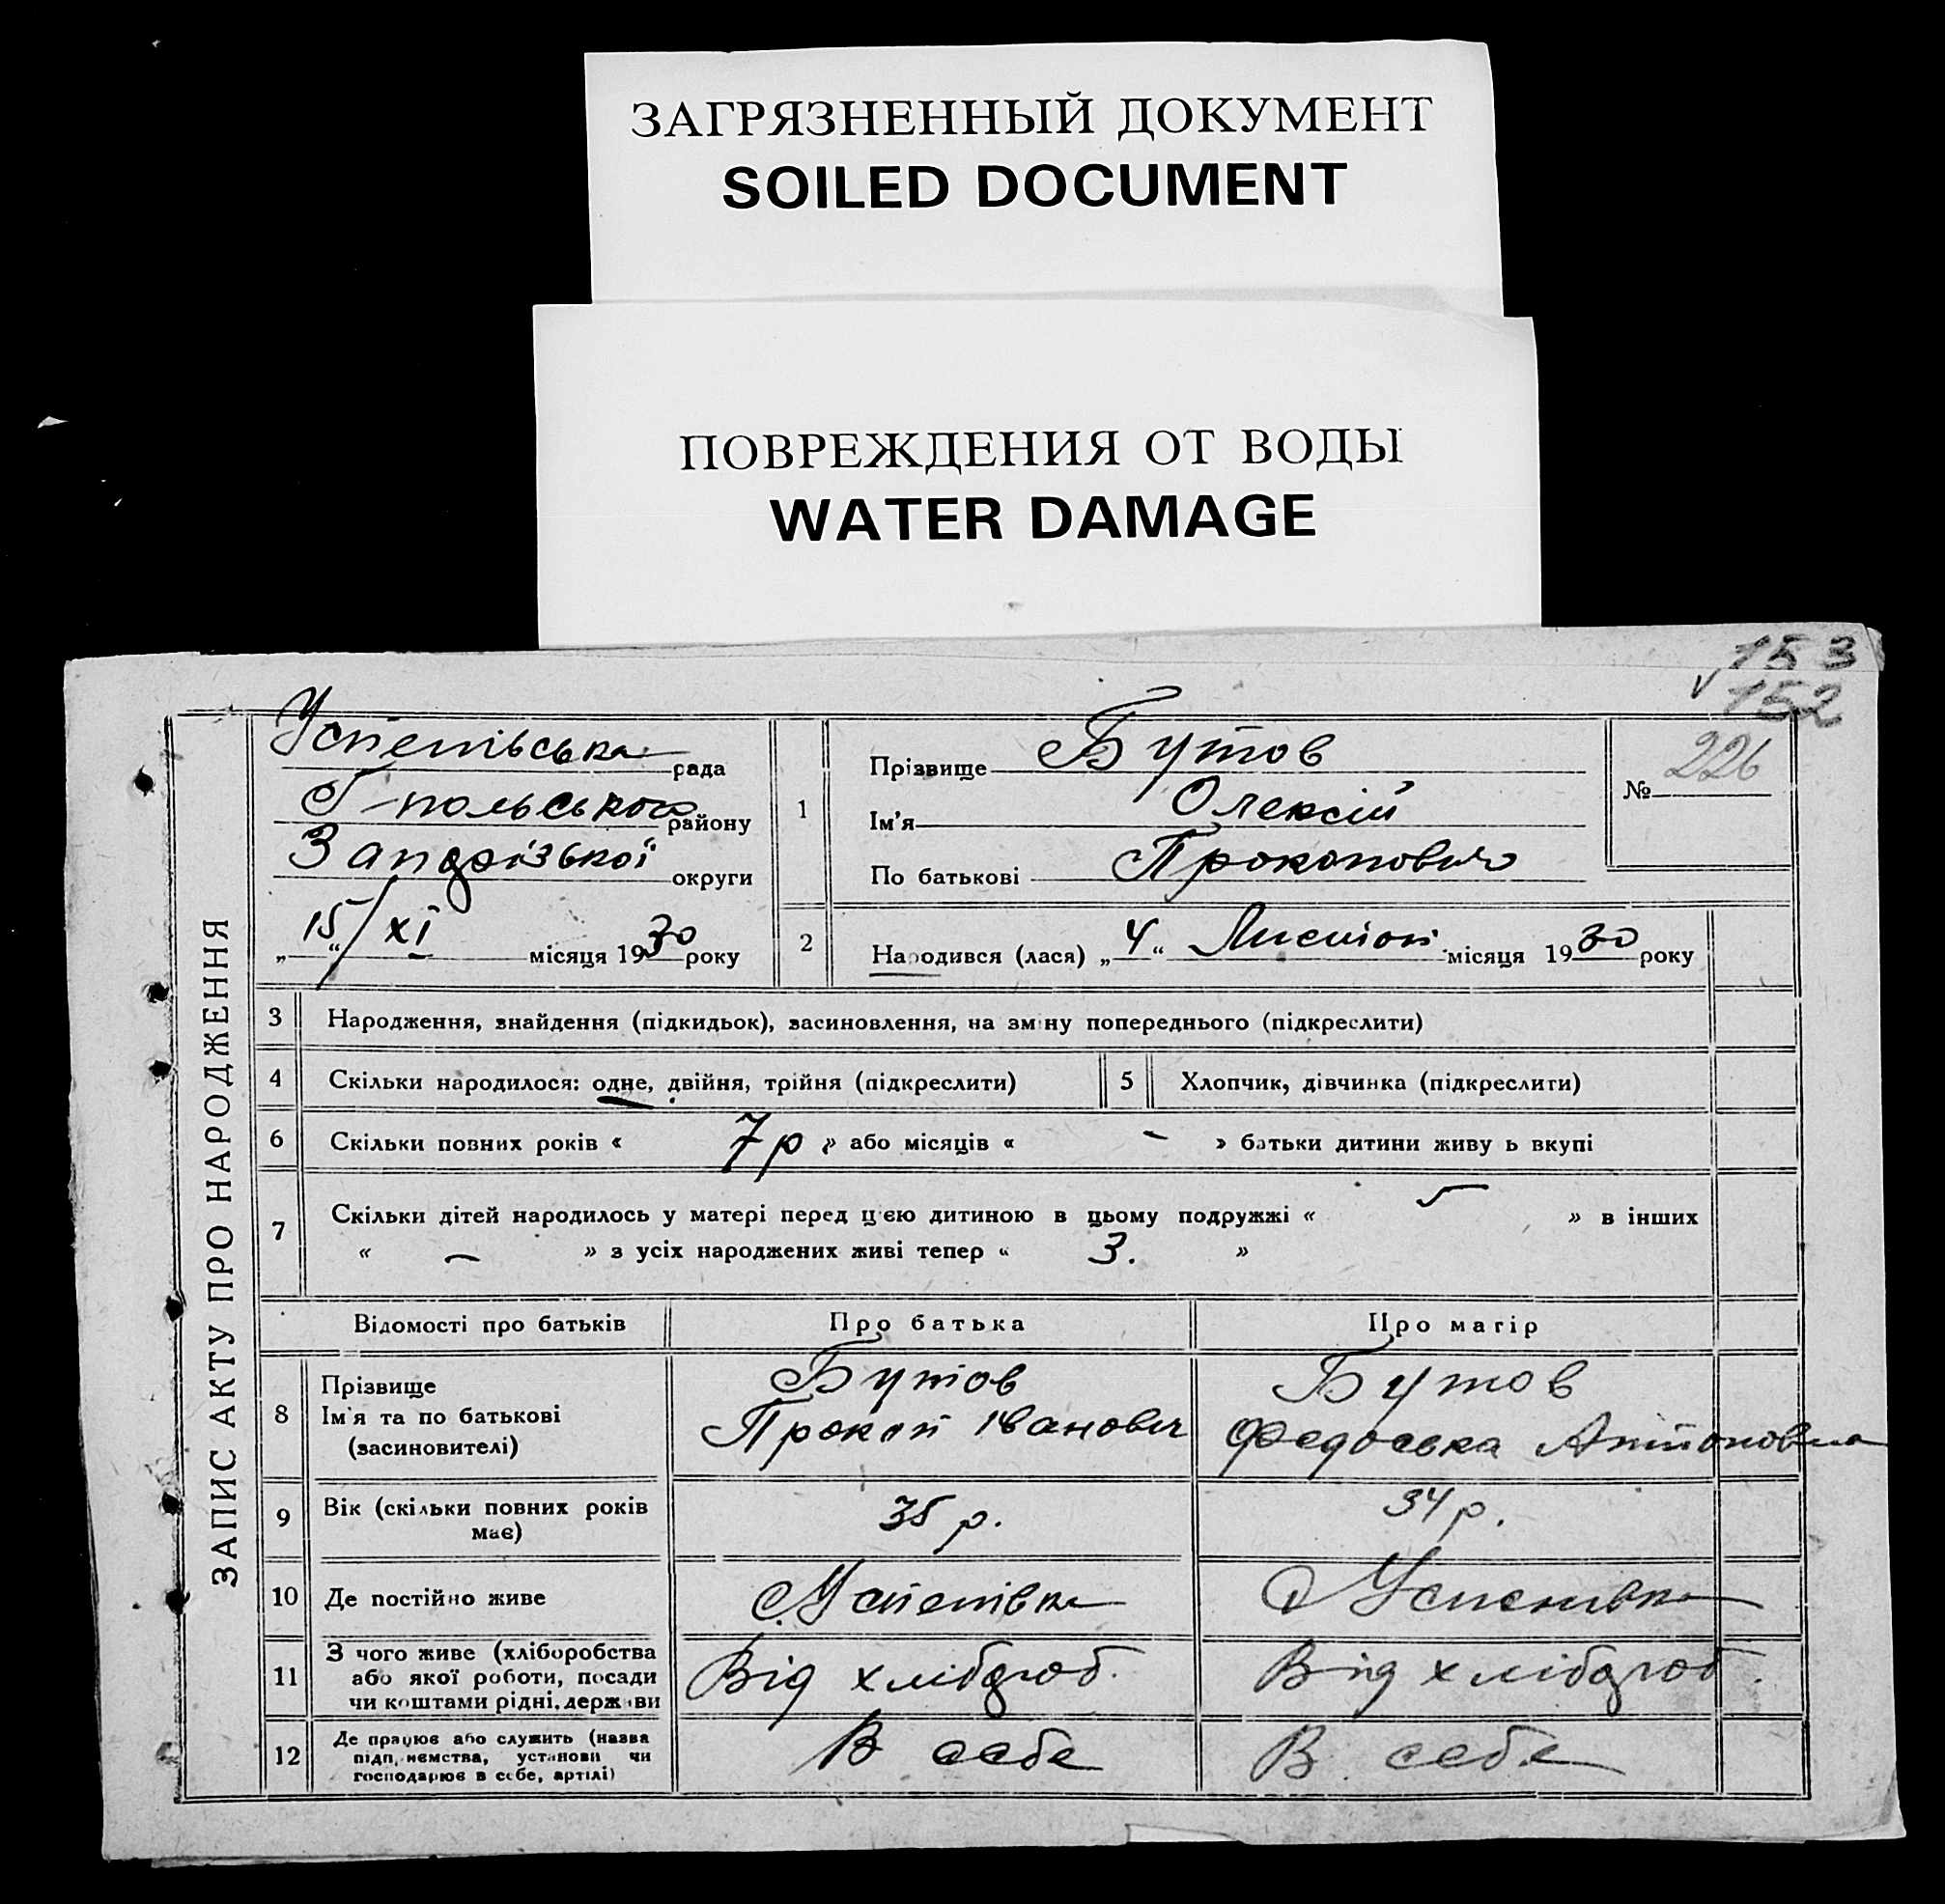 ЗАГРЯЗНЕННЫЙ ДОКУМЕНТ
SOILED DOCUMENT
ПОВРЕЖДЕНИЯ ОТ ВОДЫ
WATER DAMAGE
153
v 152
ЗАПИС АКТУ ПРО НАРОДЖЕННЯ
Успенівська рада
Г-польського району
Запорізької округи
„15/“ XI місяця 1930 року
1
Прізвище Бутов
Ім'я Олексій
По батькові Прокопович
№ 226
2 Народився (лася) „4“ Листоп. місяця 1930 року
3 Народження, знайдення (підкидьок), засиновлення, на зміну попереднього (підкреслити)
4 Скільки народилося: одне, двійня, трійня (підкреслити)
5 Хлопчик, дівчинка (підкреслити)
6 Скільки повних років « 7 р » або місяців « - » батьки дитини живуть вкупі
7 Скільки дітей народилось у матері перед цією дитиною в цьому подружжі « 5 » в інших
« — » з усіх народжених живі тепер « 3. »
Відомості про батьків Про батька Про матір
8 Прізвище
Ім'я та по батькові
(засиновителі)
Бутов
Прокоп Іванович
Бутов
Федоська Антоновна
9 Вік (скільки повних років
має)
35 р.
34 р.
10 Де постійно живе
с. Успенівка
с. Успенивка
11 З чого живе (хліборобства
або якої роботи, посади
чи коштами рідні, держави
Від хлібороб.
Від хлібороб.
12 Де працює або служить (назва
підприємства, установи чи
господарює в себе, артілі)
В себе
В себе